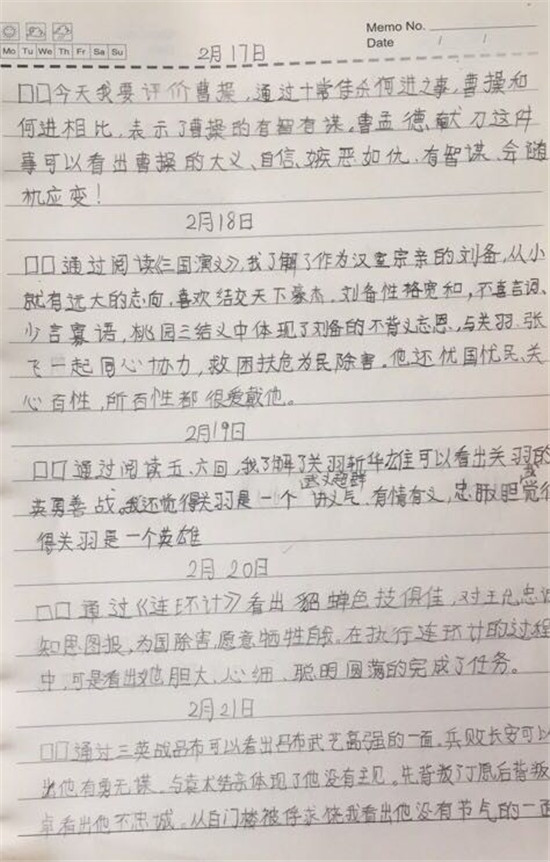 Memo No.
Mo Tu We Th Fr Sa Su
Date / /
2月17日
□□今天我要评价曹操,通过十常侍杀何进之事,曹操和
何进相比,表示了曹操的有智有谋,曹孟德献刀这件
事可以看出曹操的大义、自信、嫉恶如仇、有智谋、会随
机应变!
2月18日
□□通过阅读《三国演义》,我了解了作为汉室宗亲的刘备,从小
就有远大的志向,喜欢结交天下豪杰。刘备性格宽和,不喜言词、
少言寡语,桃园三结义中体现了刘备的不背义忘恩,与关羽、张
飞一起同心协力,救困扶危为民除害。他还忧国忧民、关
心百性,所百性都很爱戴他。
2月19日
□□通过阅读五、六回,我了解了关羽斩华雄可以看出关羽的
英勇善战。我还觉得关羽是一个武义超群讲义气、有情有义,忠肝义胆我觉得
得关羽是一个英雄
2月20日
□□通过《连环计》看出貂蝉色技俱佳,对王允忠诚
知恩图报,为国除害,愿意牺牲自我。在执行连环计的过程
中,可是看出她胆大、心细、聪明圆满的完成了任务。
2月21日
□□通过三英战吕布可以看出吕布武艺高强的一面,兵败长安可以
出他有勇无谋。与袁术结亲体现了他没有主见。先背叛丁原后背叛
卓看出他不忠诚。从白门楼被俘求饶我看出他没有节气的一面